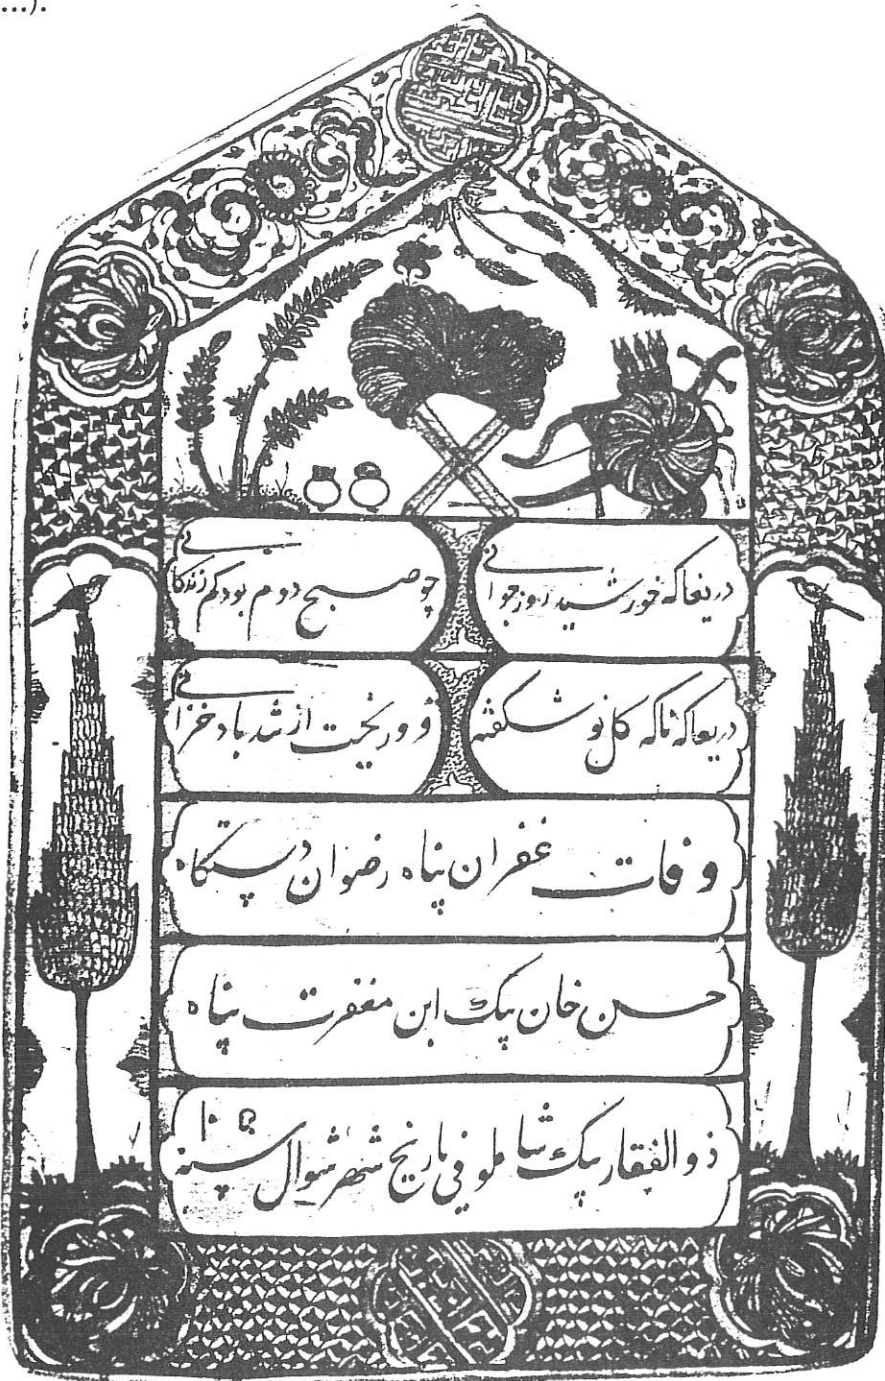 ...).
دریغا که خورشید روز جوانی
چو صبح دوم بود کم زندگانی
دریغا که ناگه گل نو شکفته
فرو ریخت از تند باد خزانی
وفات غفران پناه رضوان دستگاه
حسن خان بیک ابن مغفرت پناه
ذوالفقار بیک شاملو فی تاریخ شهر شوال سنه